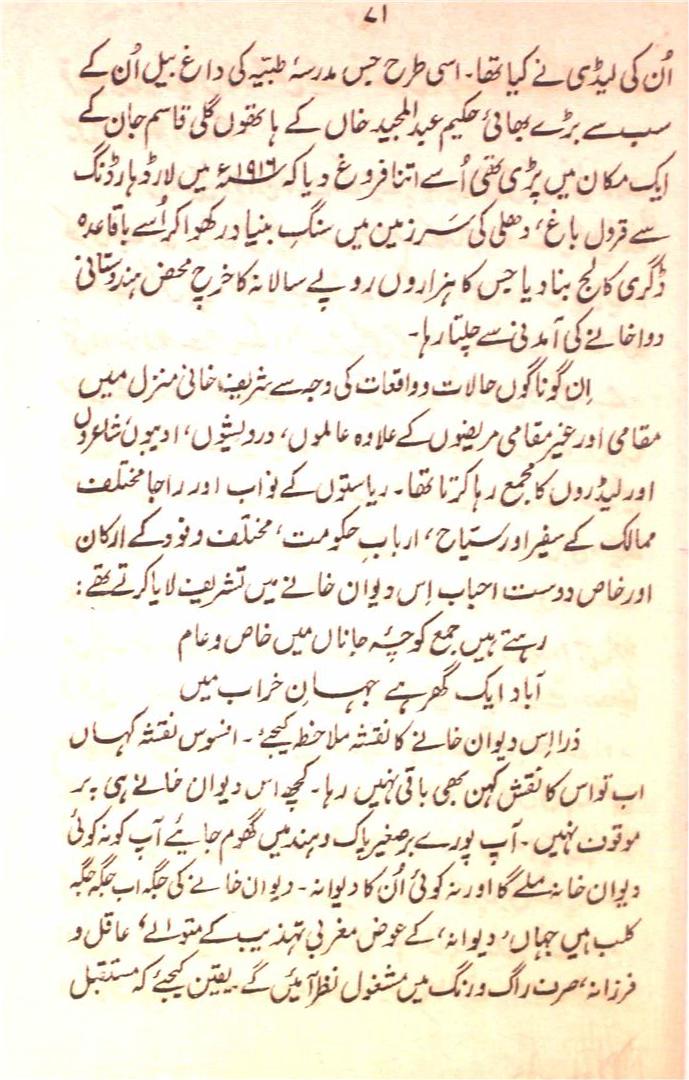 ۷۱
اُن کی لیڈی نے کیا تھا۔ اسی طرح جس مدرسۂ طبیّہ کی داغ بیل اُن کے
سب سے بڑے بھائی حکیم عبدالمجید خاں کے ہاتھوں گلی قاسم جان کے
ایک مکان میں پڑی تھی اُسے اتنا فروغ دیا کہ ۱۹۱۶ء میں لارڈ ہارڈنگ
سے قرول باغ، دھلی کی سَرزمین میں سنگِ بنیاد رکھوا کر اُسے باقاعدہ
ڈگری کالج بنا دیا جس کا ہزاروں روپے سالانہ کا خرچ محض ہندوستانی
دواخانے کی آمدنی سے چلتا رہا۔
اِن گوناگوں حالات و واقعات کی وجہ سے شریف خانی منزل میں
مقامی اور غیر مقامی مریضوں کے علاوہ عالموں، درویشوں، ادیبوں، شاعروں
اور لیڈروں کا مجمع رہا کرتا تھا۔ ریاستوں کے نواب اور راجا مختلف
ممالک کے سفیر اور سیّاح، اربابِ حکومت، مختلف وفود کے ارکان
اور خاص دوست احباب اِس دیوان خانے میں تشریف لایا کرتے تھے:
رہتے ہیں جمع کوچۂ جاناں میں خاص و عام
آباد ایک گھر ہے جہانِ خراب میں
ذرا اِس دیوان خانے کا نقشہ ملاحظہ کیجئے۔ افسوس نقشہ کہاں
اب تو اس کا نقشِ کہن بھی باقی نہیں رہا۔ کچھ اس دیوان خانے ہی پر
موقوف نہیں۔ آپ پورے برِصغیر پاک و ہند میں گھوم جایئے آپ کو نہ کوئی
دیوان خانہ ملے گا اور نہ کوئی اُن کا دیوانہ۔ دیوان خانے کی جگہ اب جگہ جگہ
کلب ہیں جہاں ’دیوانہ‘ کے عوض مغربی تہذیب کے متوالے ’عاقل و
فرزانہ‘ صرف راگ و رنگ میں مشغول نظر آئیں گے۔ یقین کیجئے کہ مستقبل